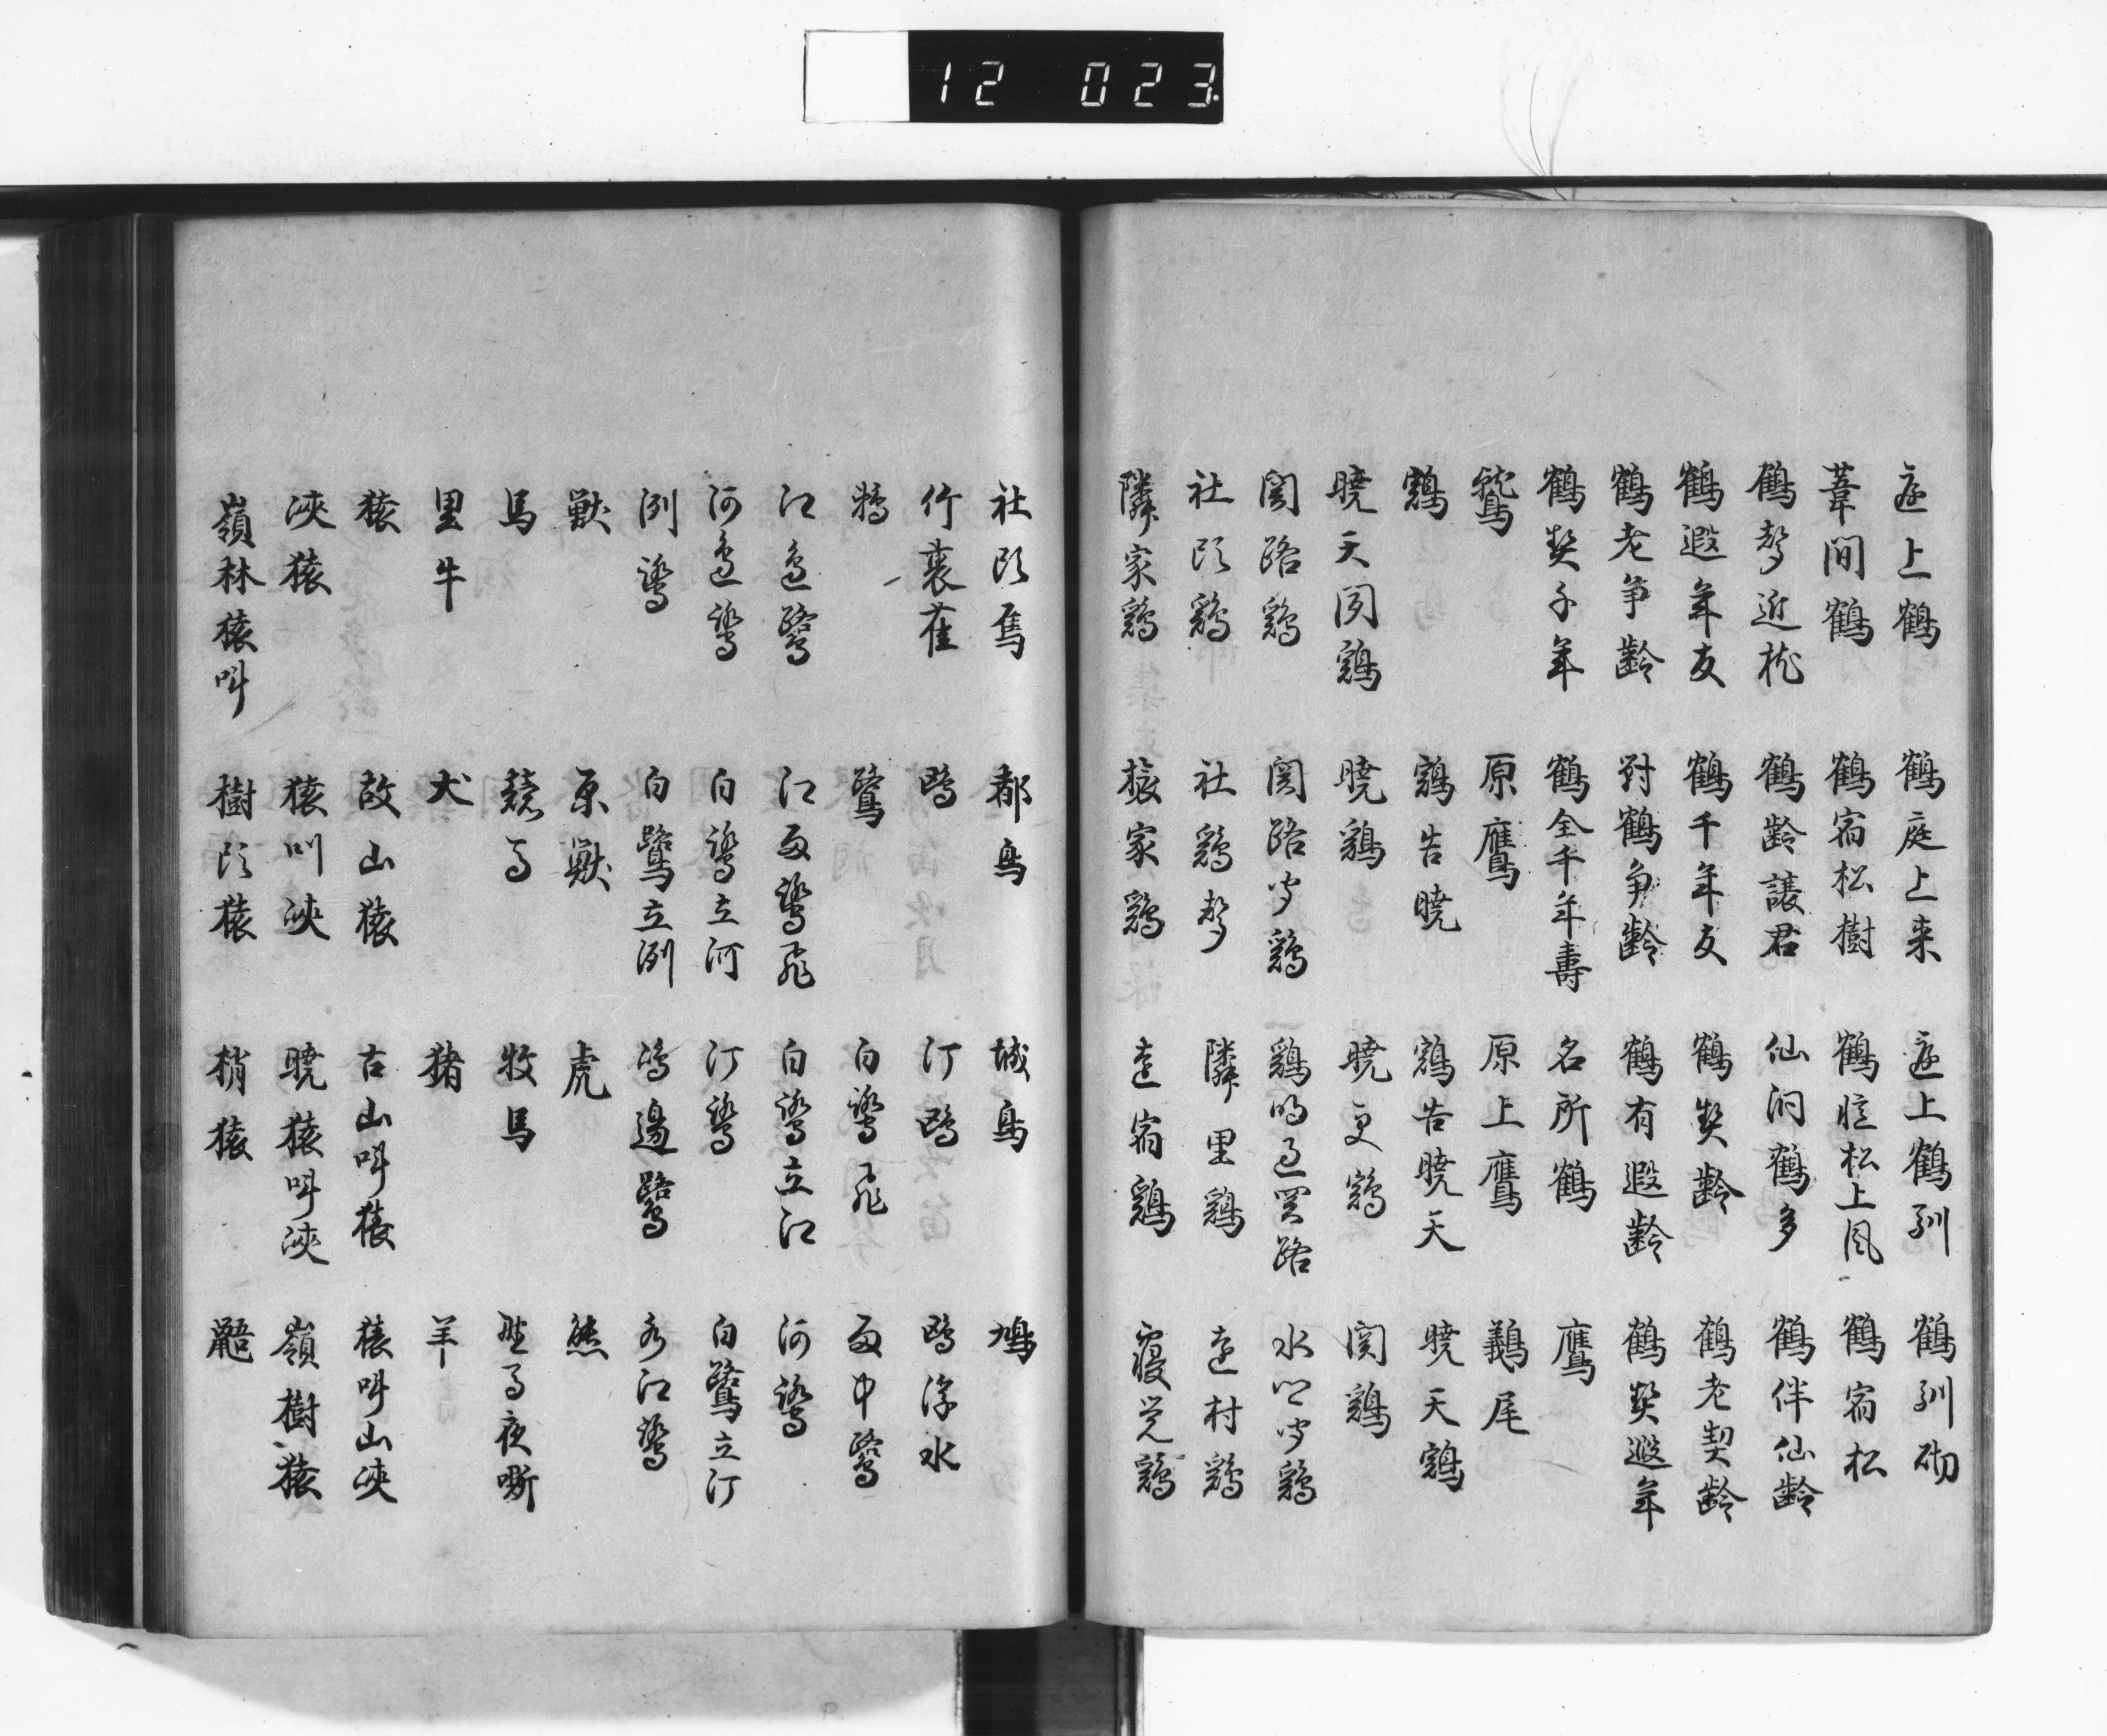 12 023
庭上鶴 鶴庭上来 庭上鶴馴 鶴馴砌
葦間鶴 鶴宿松樹 鶴睡松上風 鶴宿松
鶴声近枕 鶴齢譲君 仙洞鶴多 鶴伴仙齢
鶴遐年友 鶴千年友 鶴契齢 鶴老契齢
鶴老争齢 対鶴争齢 鶴有遐齢 鶴契遐年
鶴契千年 鶴全千年寿 名所鶴 鷹
鷲 原鷹 原上鷹 鵜尾
鶏 鶏告暁 鶏告暁天 暁天鶏
暁天関鶏 暁鶏 暁更鶏 関鶏
関路鶏 関路聞鶏 鶏鳴過関路 水郷聞鶏
社頭鶏 社鶏声 隣里鶏 遠村鶏
隣家鶏 旅家鶏 遠宿鶏 寝覚鶏
社頭鳥 都鳥 城鳥 鳩
竹裏雀 鴎 汀鴎 鴎浮水
鵜 鷺 白鷺飛 雨中鷺
江辺鷺 江雨鷺飛 白鷺立江 河鷺
河辺鷺 白鷺立河 汀鷺 白鷺立汀
洲鷺 白鷺立洲 潟辺鷺 水江鷺
獣 原獣 虎 熊
馬 競馬 牧馬 野馬夜嘶
里牛 犬 猪 羊
猿 故山猿 古山叫猿 猿叫山峡
峡猿 猿叫峡 暁猿叫峡 嶺樹猿
嶺林猿叫 樹頭猿 梢猿 鼯